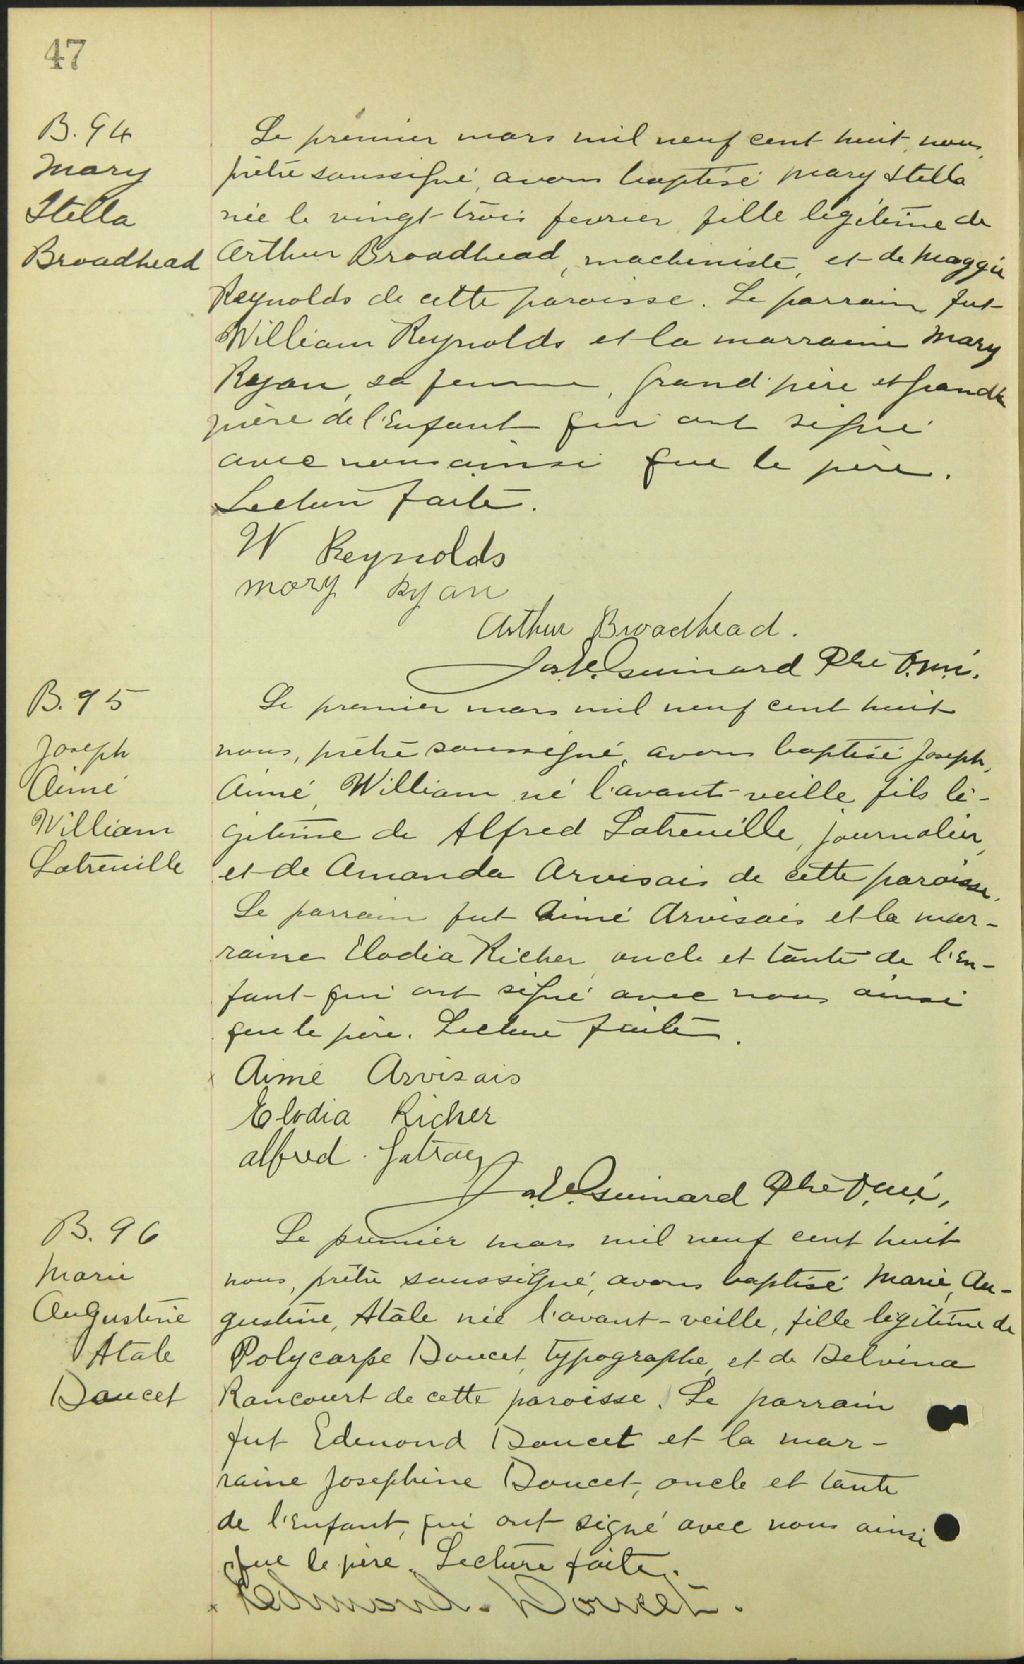 47
B. 94
Mary
Stella
Broadhead
Le premier mars mil neuf cent huit, nous,
prêtre soussigné, avons baptisé Mary Stella
née le vingt-trois fevrier, fille légitime de
Arthur Broadhead, machiniste, et de Maggie
Reynolds de cette paroisse. Le parrain fut
William Reynolds et la marraine Mary
Ryan, sa femme, Grand'père et Grand'
mère de l'Enfant qui ont signé
avec nous ainsi que le père.
Lecture faite.
W Reynolds
Mary Ryan
Arthur Broadhead.
Jos. E. Guinard Ptre O.m.i.
B. 95
Joseph
Aimé
William
Latreuille
Le premier mars mil neuf cent huit
nous, prêtre soussigné, avons baptisé Joseph,
Aimé, William né l'avant-veille, fils lé-
gitime de Alfred Latreuille, journalier,
et de Amanda Arvisais de cette paroisse.
Le parrain fut Aimé Arvisais et la mar-
raine Elodia Richer, oncle et tante de l'En-
fant qui ont signé avec nous ainsi
que le père. Lecture faite.
Aimé Arvisais
Elodia Richer
alfred
Jos. E. Guinard Ptre O.m.i.
B. 96
Marie
Augustine
Atale
Doucet
Le premier mars mil neuf cent huit
nous, prêtre soussigné, avons baptisé Marie, Au-
gustine, Atale née l'avant-veille, fille légitime de
Polycarpe Doucet, typographe, et de Delvina
Rancourt de cette paroisse. Le parrain
fut Edmond Doucet et la mar-
raine Josephine Doucet, oncle et tante
de l'Enfant, qui ont signé avec nous ainsi
que le père. Lecture faite.